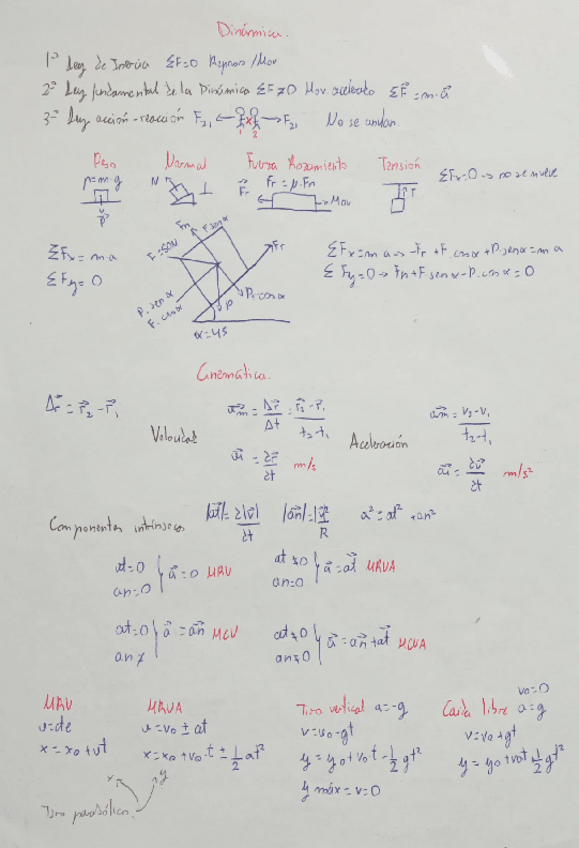 Dinámica.
1ª Ley de Inercia ΣF=0 Reposo/Mov
2ª Ley fundamental de la Dinámica ΣF≠0 Mov. acelerado ΣF⃗=m·a⃗
3ª Ley acción-reacción F₂₁ F₂₁ No se anulan.
1 2
Peso Normal Fuerza Rozamiento Tensión
p=m·g N Fr=μ·Fn T ΣFx=0→no se mueve
F⃗r Mov
p⃗
ΣFx=m·a
ΣFy=0
Fn F senα
F=50N Fr
P·senα
F·cosα
P P·cosα
α=45
ΣFx=m·a→-Fr+F·cosα+P·senα=m·a
ΣFy=0→Fn+F senα-P·cosα=0
Cinemática.
Δr⃗=r⃗₂-r⃗₁
Velocidad v⃗m=Δr⃗/Δt=r⃗₂-r⃗₁/t₂-t₁
v⃗i=∂r⃗/∂t m/s
Aceleración a⃗m=v₂-v₁/t₂-t₁
a⃗i=∂v⃗/∂t m/s²
Componentes intrínsecos |a⃗t|=∂|v⃗|/∂t |a⃗n|=|v²|/R a²=at²+an²
at=0
an=0 } a⃗=0 MRU
at≠0
an=0 } a⃗=a⃗t MRUA
at=0
an≠ } a⃗=a⃗n MCU
at≠0
an≠0 } a⃗=a⃗n+a⃗t MCUA
MRU
v=cte
x=x₀+vt
MRUA
v=v₀±at
x=x₀+v₀·t±1/2at²
x y
Tiro parabólico.
Tiro vertical a=-g
v=v₀-gt
y=y₀+v₀t-1/2gt²
y máx=v=0
v₀=0
Caída libre a=g
v=v₀+gt
y=y₀+v₀t+1/2gt²